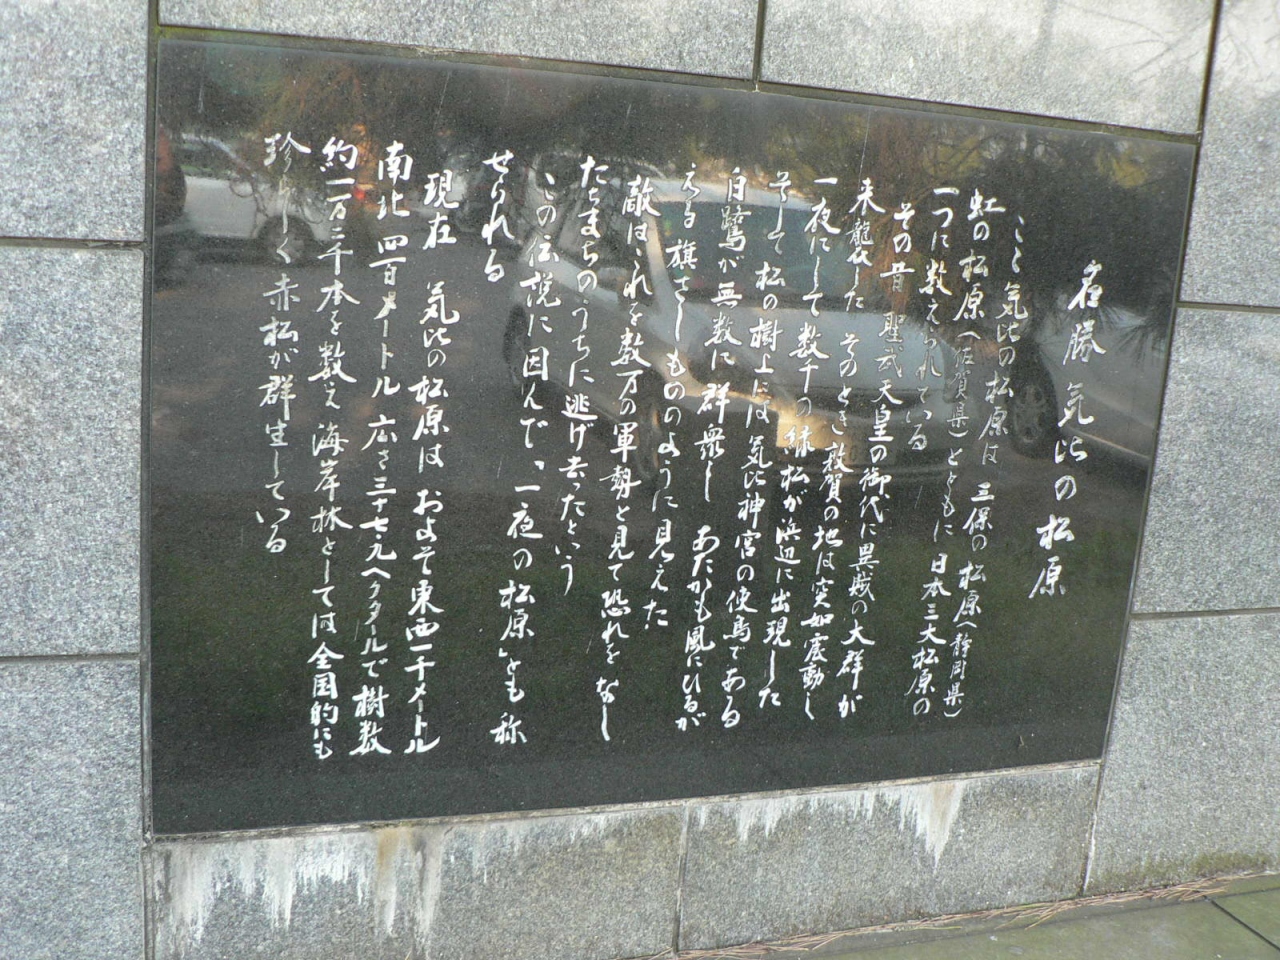 名勝 気比の松原
ここ気比の松原は 三保の松原(静岡県)
虹の松原(佐賀県)とともに 日本三大松原の
一つに数えられている
その昔 聖武天皇の御代に異賊の大群が
来襲した そのとき敦賀の地は突如震動し
一夜にして数千の緑松が浜辺に出現した
そして松の樹上には気比神宮の使鳥である
白鷺が無数に群衆し あたかも風にひるが
える旗さしもののように見えた
敵はこれを数万の軍勢と見て恐れをなし
たちまちのうちに逃げ去ったという
この伝説に因んで「一夜の松原」とも称
せられる
現在 気比の松原は およそ東西一千メートル
南北四百メートル 広さ三十七・九ヘクタールで樹数
約一万二千本を数え海岸林としては全国的にも
珍しく赤松が群生している